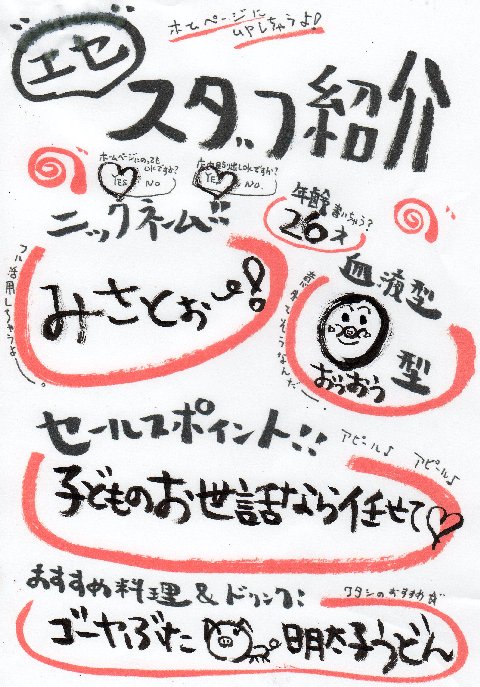 ホームページに
UPしちゃうよ!
エセ
スタッフ紹介
ホームページにのっても
OKですか?
YES NO
店内貼り出しOKですか?
YES NO.
ニックネーム!!
年齢言いちゃう?
26才
みさとぉ〜!
フル活用しちゃうよ〜。
血液型
おうおう
型
セールスポイント!!
アピール♪ アピール♪
子どものお世話なら任せて♡
おすすめ料理&ドリンク:
ワタシのおすすめだ
ゴーヤぶた 明太子うどん